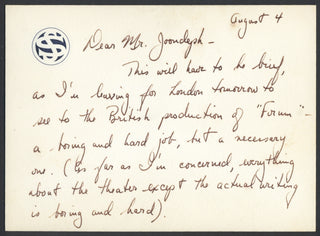 August 4
Dear Mr. Joondeph -
This will have to be brief,
as I'm leaving for London tomorrow to
see to the British production of "Forum" -
a boring and hard job, but a necessary
one. (As far as I'm concerned, everything
about the theater except the actual writing
is boring and hard).